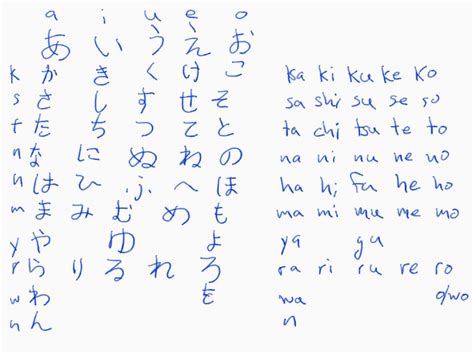 a i u e o
あ い う え お
k か き く け こ ka ki ku ke ko
s さ し す せ そ sa shi su se so
t た ち つ て と ta chi tsu te to
n な に ぬ ね の na ni nu ne no
h は ひ ふ へ ほ ha hi fu he ho
m ま み む め も ma mi mu me mo
y や ゆ よ ya yu
r ら り る れ ろ ra ri ru re ro
w わ を wa o/wo
n ん n